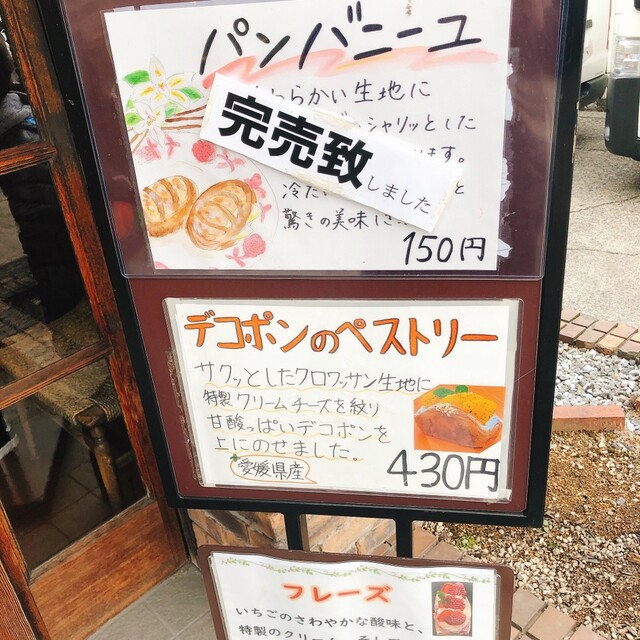 パンバニーユ
らかい生地に
シャリッとした
ます。
完売致しました
冷た
と
驚きの美味し
150円
デコポンのペストリー
サクッとしたクロワッサン生地に
特製クリームチーズを絞り
甘酸っぱいデコポンを
上にのせました。
愛媛県産
430円
フレーズ
いちごのさわやかな酸味と、
特製のクリーム、